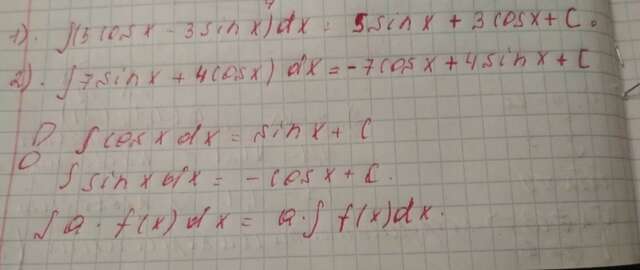 1). ∫(5cosx - 3sinx)dx = 5sinx + 3cosx + C.
2). ∫7sinx + 4cosx) dx = -7cosx + 4sinx + C
D ∫cosxdx = sinx + C
O
∫sinxdx = -cosx + C.
∫a · f(x)dx = a · ∫f(x)dx.